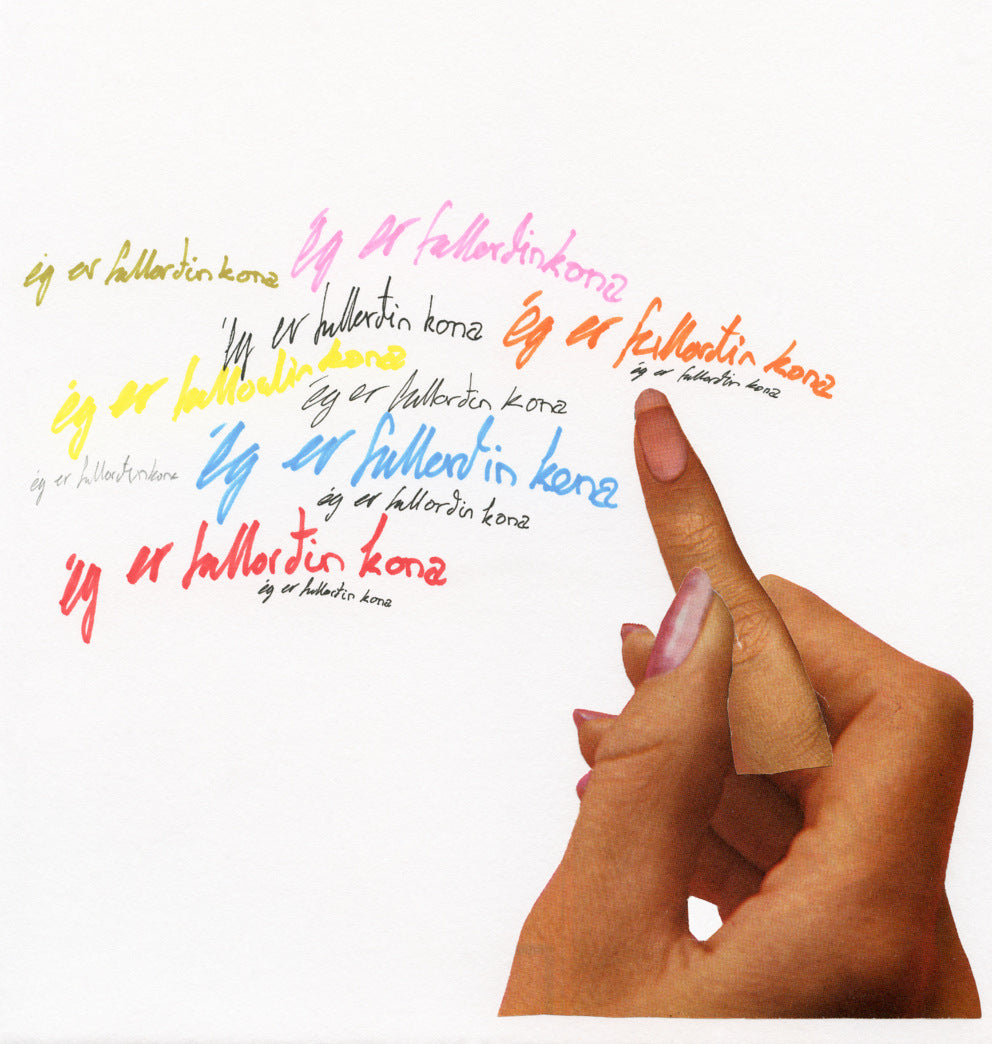 ég er fullorðin kona
ég er fullorðin kona
ég er fullorðin kona
ég er fullorðin kona
ég er fullorðin kona
ég er fullorðin kona
ég er fullorðin kona
ég er fullorðin kona
ég er fullorðin kona
ég er fullorðin kona
ég er fullorðin kona
ég er fullorðin kona